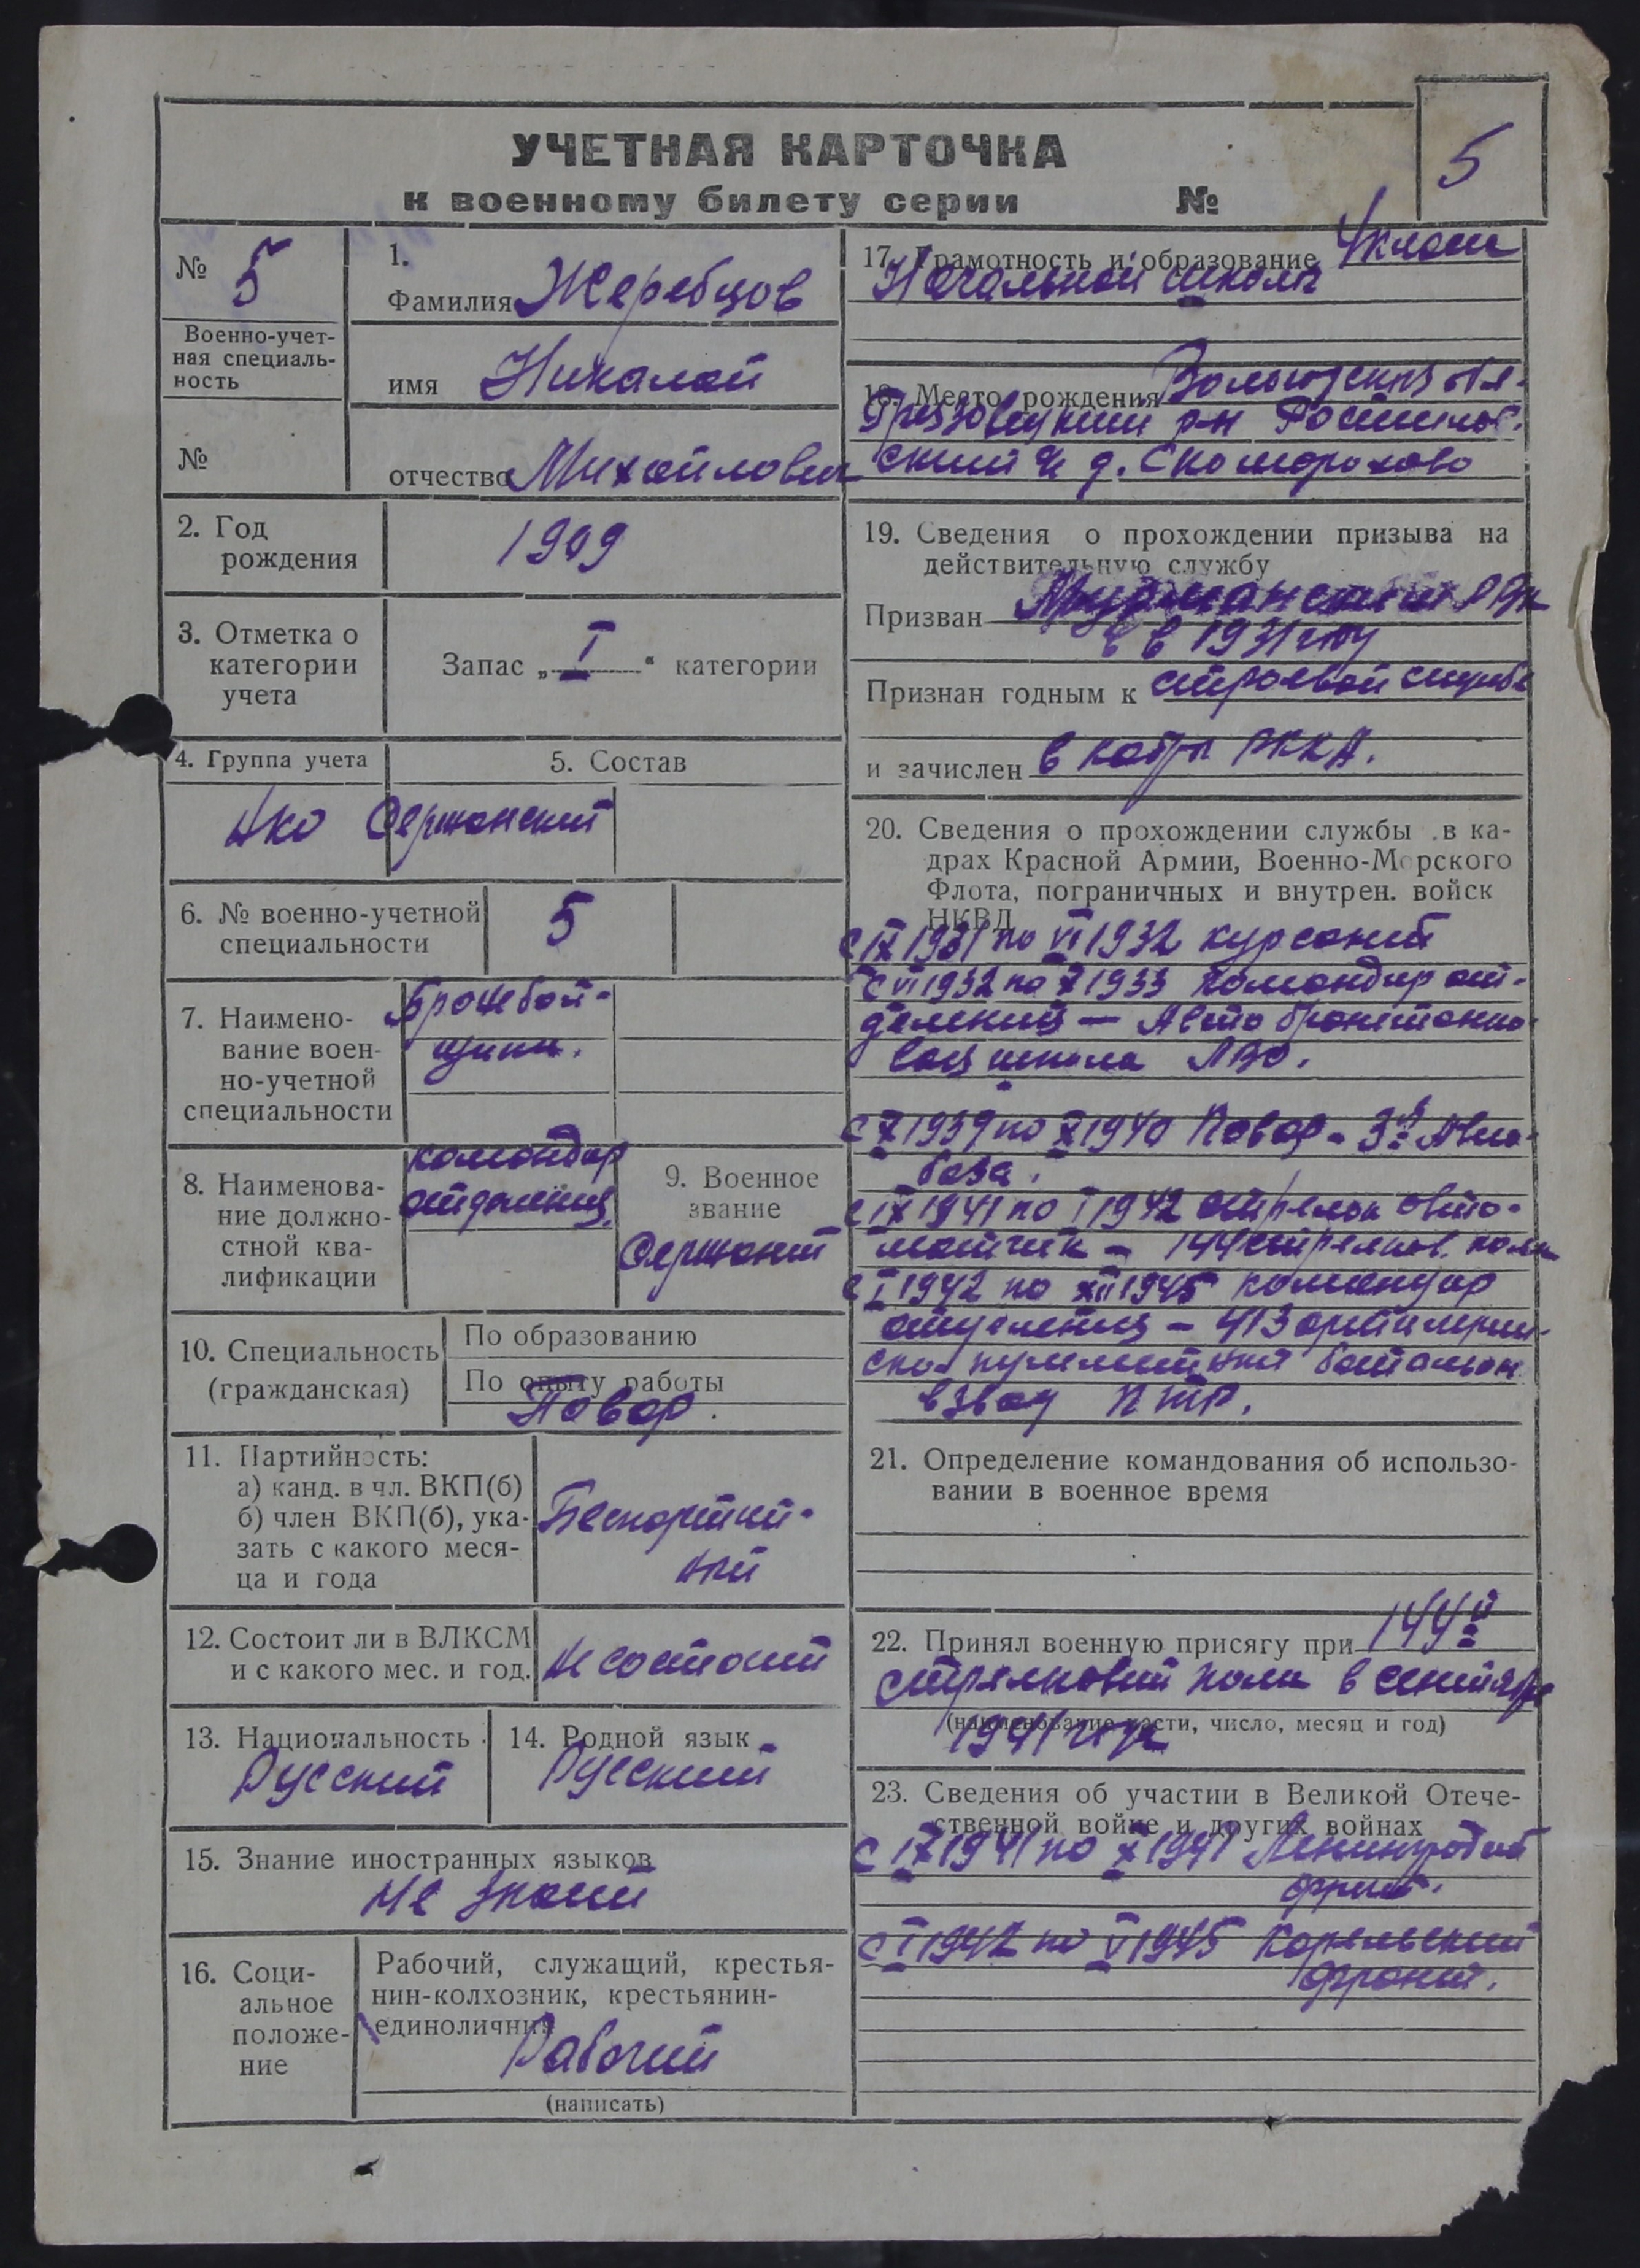 УЧЕТНАЯ КАРТОЧКА
к военному билету серии №
5
№ 5
Военно-учет-
ная специаль-
ность
№
1.
Фамилия Жеребцов
имя Николай
отчество Михайлович
2. Год
рождения
1909
3. Отметка о
категории
учета
Запас „ I “ категории
4. Группа учета
5. Состав
Сержанский
6. № военно-учетной
специальности
5
7. Наимено-
вание воен-
но-учетной
специальности
Бронебой-
щики.
8. Наименова-
ние должно-
стной ква-
лификации
командир
отделения.
9. Военное
звание
Сержант
10. Специальность
(гражданская)
По образованию
По опыту работы
Повар.
11. Партийность:
а) канд. в чл. ВКП(б)
б) член ВКП(б), ука-
зать с какого меся-
ца и года
Беспартий-
ный
12. Состоит ли в ВЛКСМ
и с какого мес. и год.
Не состоит
13. Национальность
Русский
14. Родной язык
Русский
15. Знание иностранных языков
Не знает
16. Соци-
альное
положе-
ние
Рабочий, служащий, крестья-
нин-колхозник, крестьянин-
единоличник
Рабочий
(написать)
17. Грамотность и образование 4 класса
Начальной школы
18. Место рождения Вологодская обл.
Грязовецкий р-н Ростилов-
ский д. Скоморохово
19. Сведения о прохождении призыва на
действительную службу
Призван Мурманским РВК
в 1931 году
Признан годным к строевой службе
и зачислен в кадры РККА.
20. Сведения о прохождении службы в ка-
драх Красной Армии, Военно-Морского
Флота, пограничных и внутрен. войск
НКВД
с IX 1931 по VI 1932 курсант
с VI 1932 по X 1933 командир от-
деления — Авто бронетанко-
вая школа ЛВО.
с X 1939 по X 1940 Повар - 3я Авиа-
база.
с IX 1941 по I 1942 стрелок авто-
матчик - 144 стрелков. полк
с I 1942 по XII 1945 командир
отделения - 413 артиллерий-
ско-пулеметный батальон
взвод ПТР.
21. Определение командования об использо-
вании в военное время
22. Принял военную присягу при 144й
стрелковый полк в сентябре
(наименование части, число, месяц и год)
1941 года
23. Сведения об участии в Великой Отече-
ственной войне и других войнах
с IX 1941 по X 1941 Ленинградский
фронт.
с I 1942 по V 1945 Карельский
фронт.